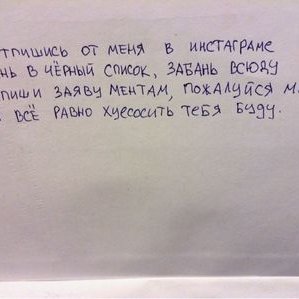 тпишись от меня в инстаграме
нь в чёрный список, забань всюду
пиши заяву ментам, пожалуйся м
всё равно хуесосить тебя буду.